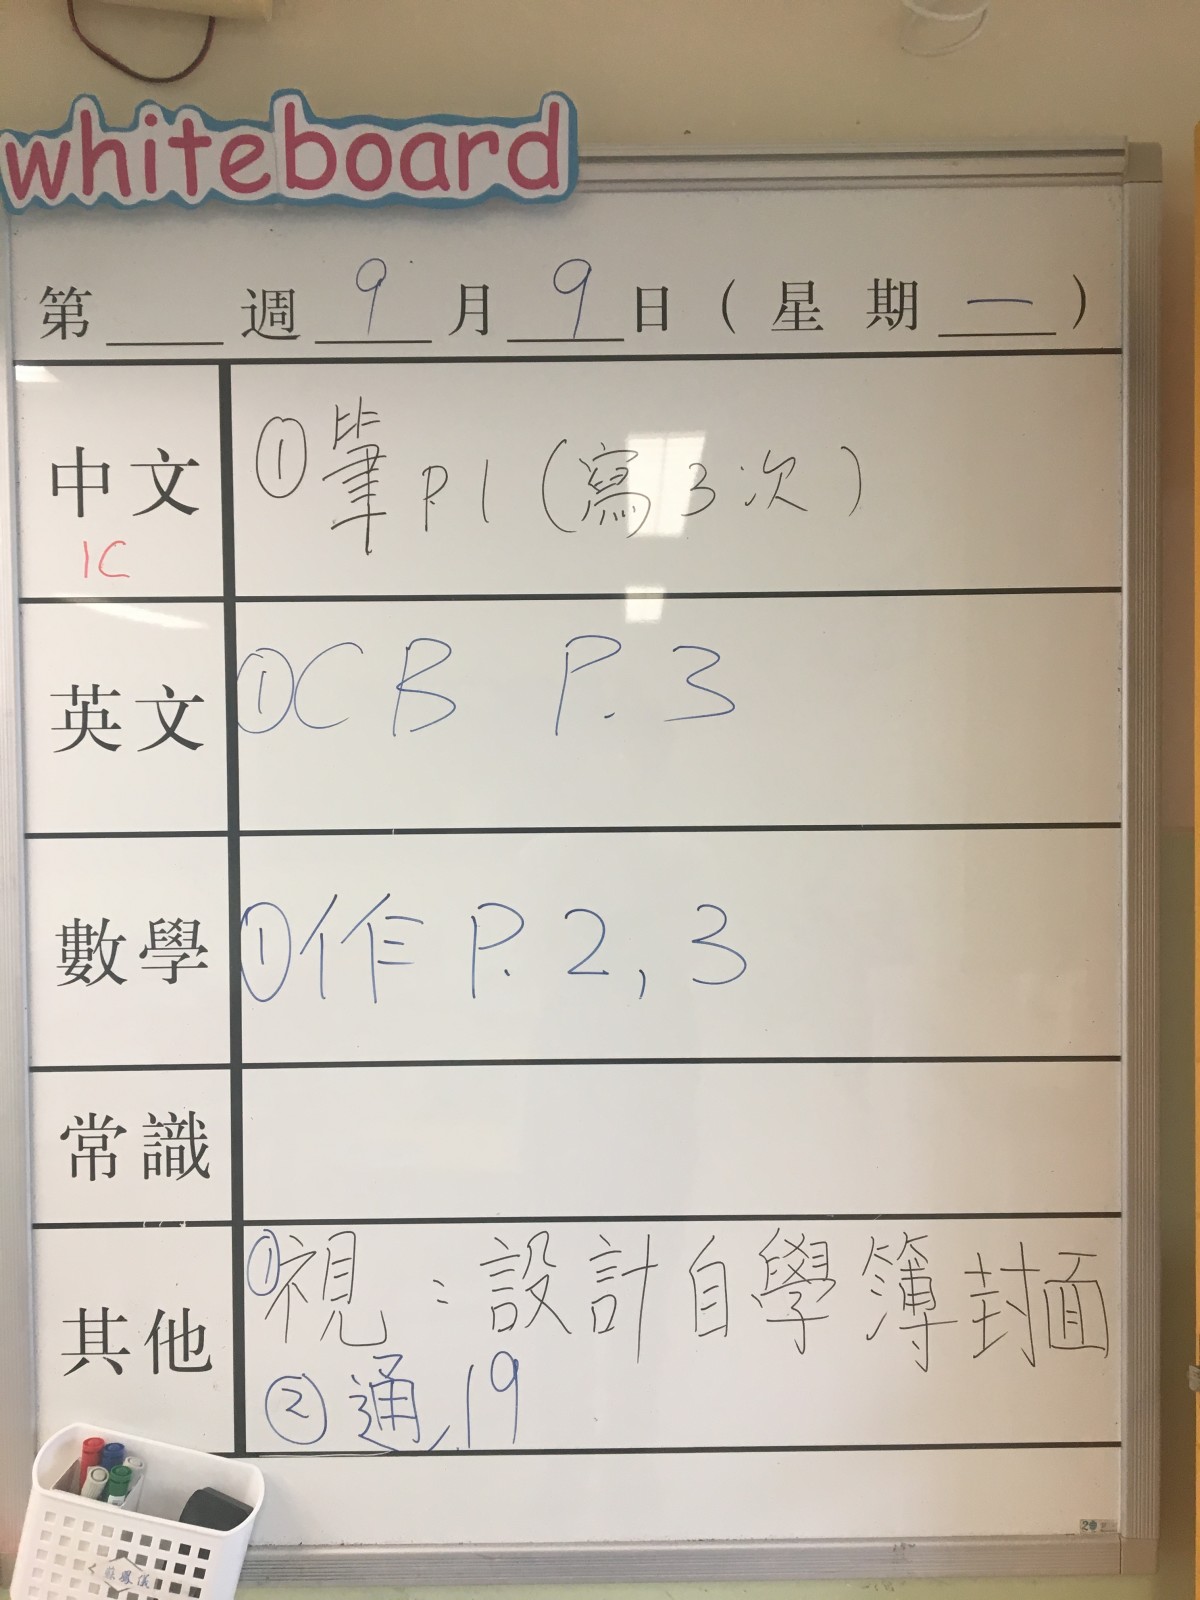 whiteboard
第 週 9 月 9 日 ( 星期 一 )
中文 ① 筆 P.1 (寫3次)
1C
英文 ① CB P.3
數學 ① 作 P.2, 3
常識
其他 ① 視：設計自學簿封面
② 通.19
蘇鳳儀